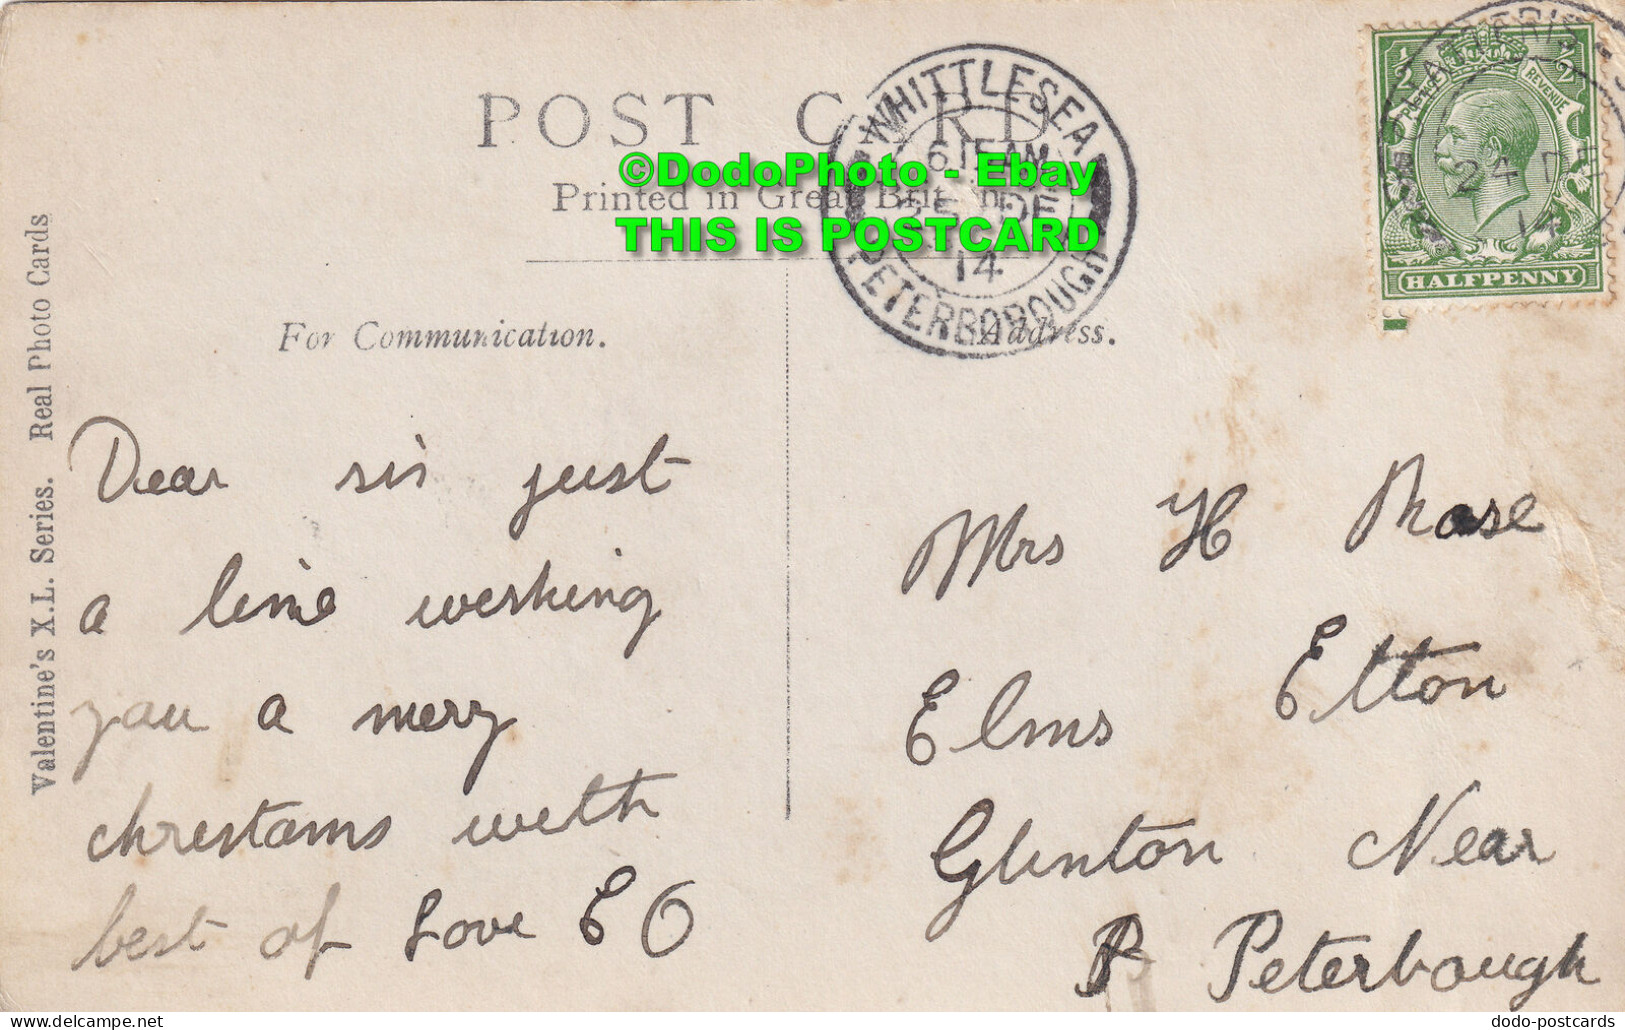 POST CARD
Printed in Great Britain
©DodoPhoto - Ebay
THIS IS POSTCARD
WHITTLESEA
6.15 AM
25 DE
14
PETERBOROUGH
24 DE
14
POSTAGE REVENUE
½ ½
HALFPENNY
For Communication.
Address.
Valentine's X.L. Series. Real Photo Cards
Dear sis just
a line weshing
you a merry
chrestams weth
best of Love E O
Mrs H
Elms Etton
Glinton Near
P Peterbough
dodo-postcards